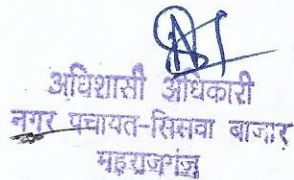 अधिशासी अधिकारी
नगर पंचायत-सिसवा बाजार
महराजगंज